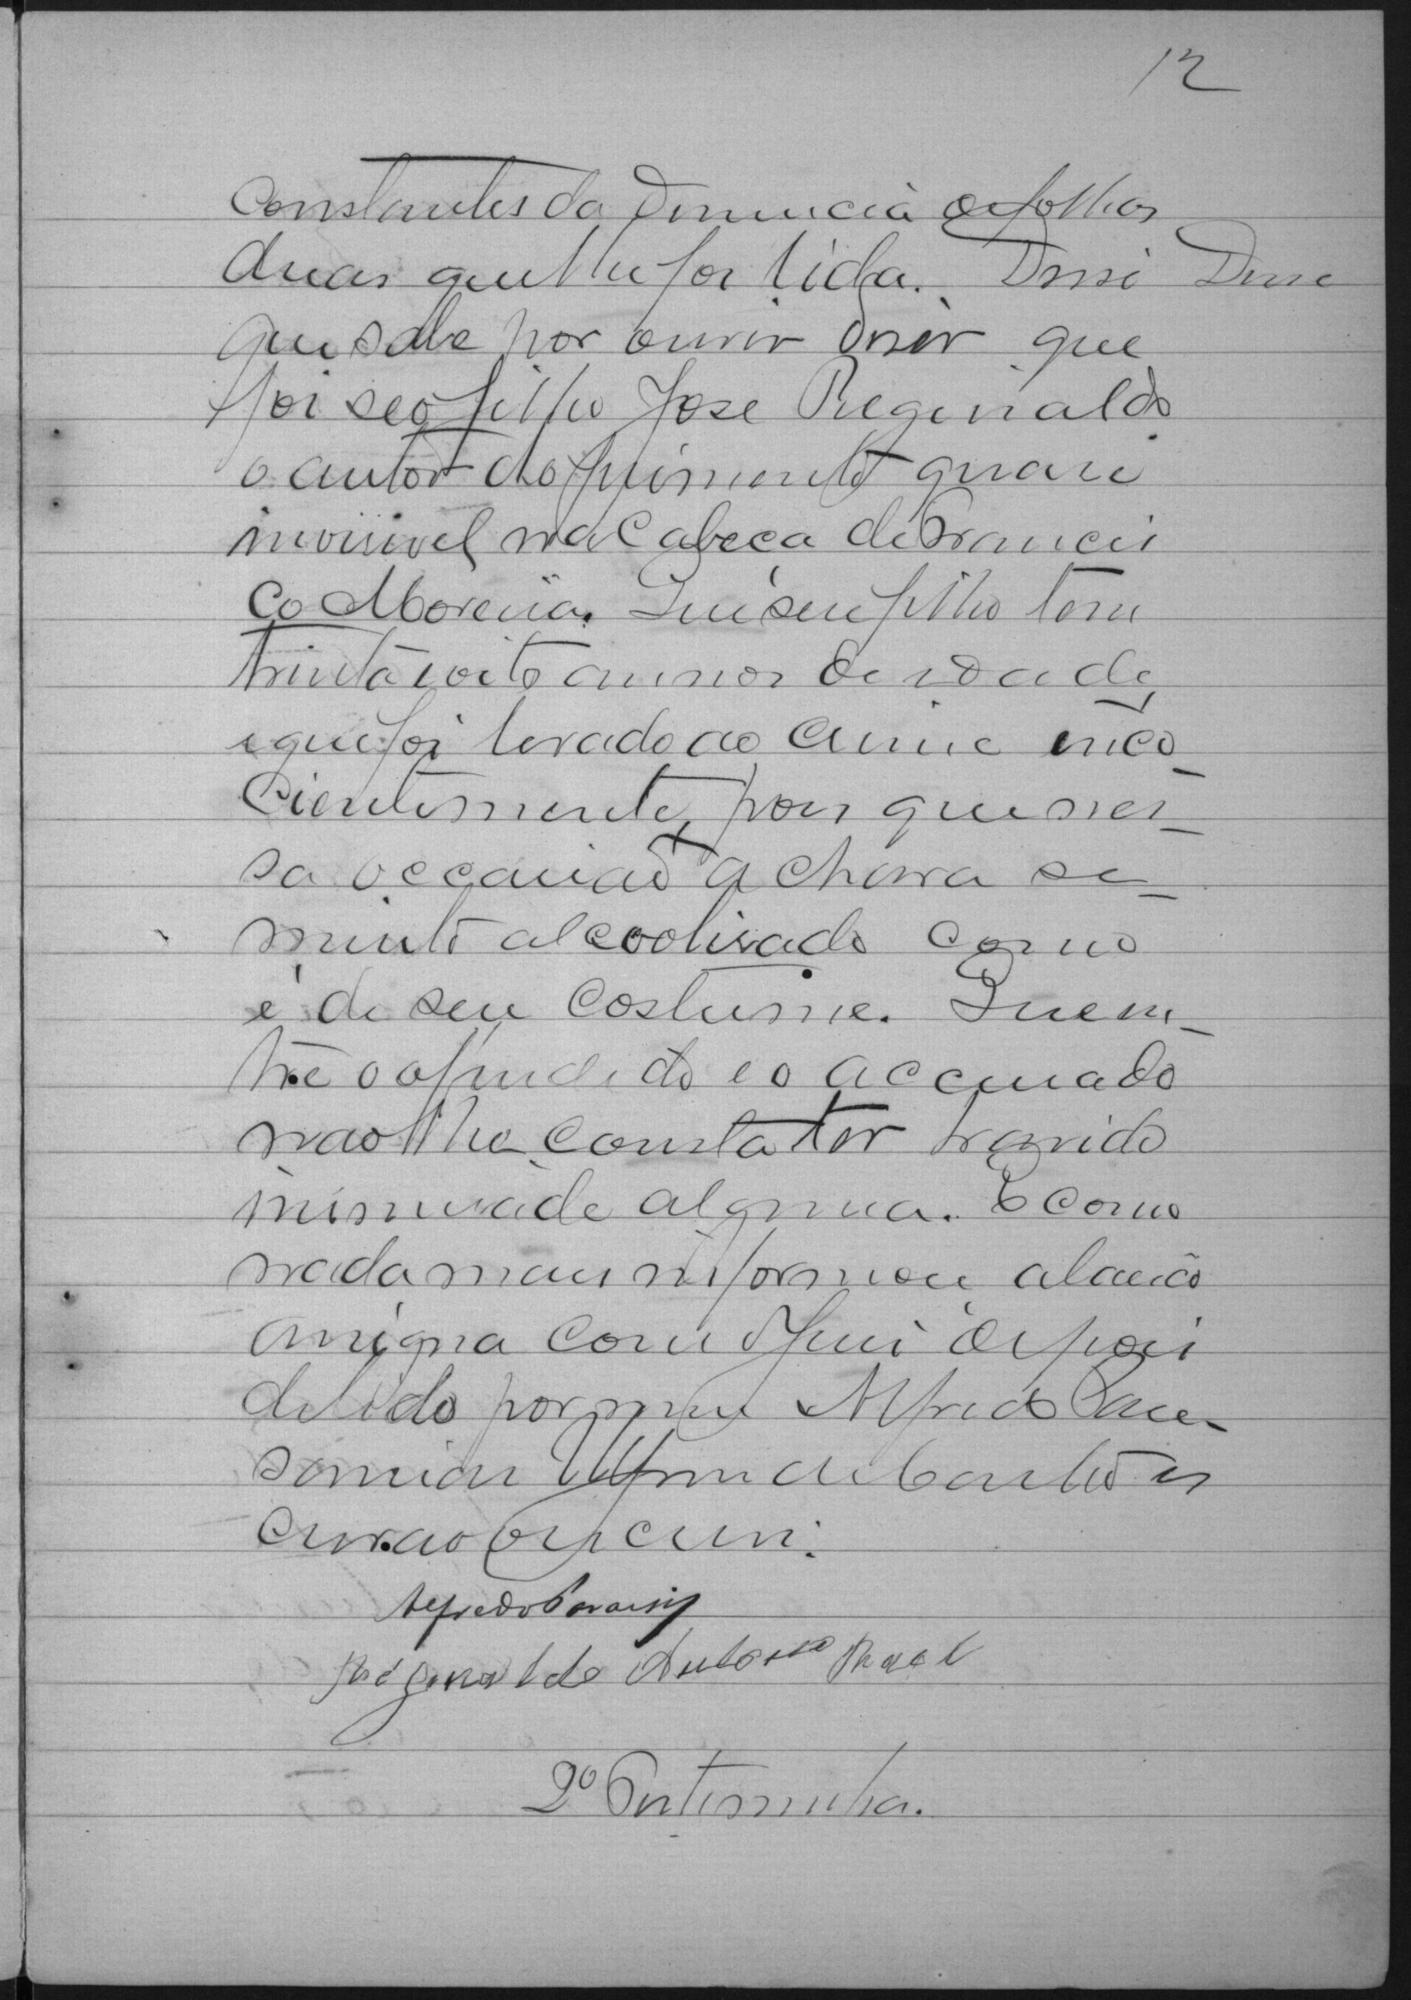 12
Constantes da Denuncia de folhas
duas que lhe foi lida. Disse Disse
que sabe por ouvir diser que
foi seo filho Jose Reginaldo
o autor do ferimento quasi
invisivel na Cabeca de Francis
co Moreira. Que seu filho tem
trinta e oito annos de idade
e que foi levado ao crime inco
cientemente, pois que nes-
sa occasião achava se
muito alcoolisado como
é de seu costume. Que en-
tre o offendido e o accusado
não lhe consta ter havido
inimisade alguma. E como
nada mais informou
assigna com o Juiz depois
de lido por mim Alfredo
de
crivão o escrevi.
Alfredo
Reginaldo Antonio
2º Testemunha.